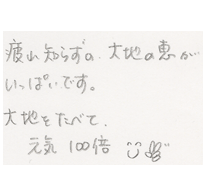 疲れ知らずの、大地の恵が
いっぱいです。
大地をたべて、
元気 100倍